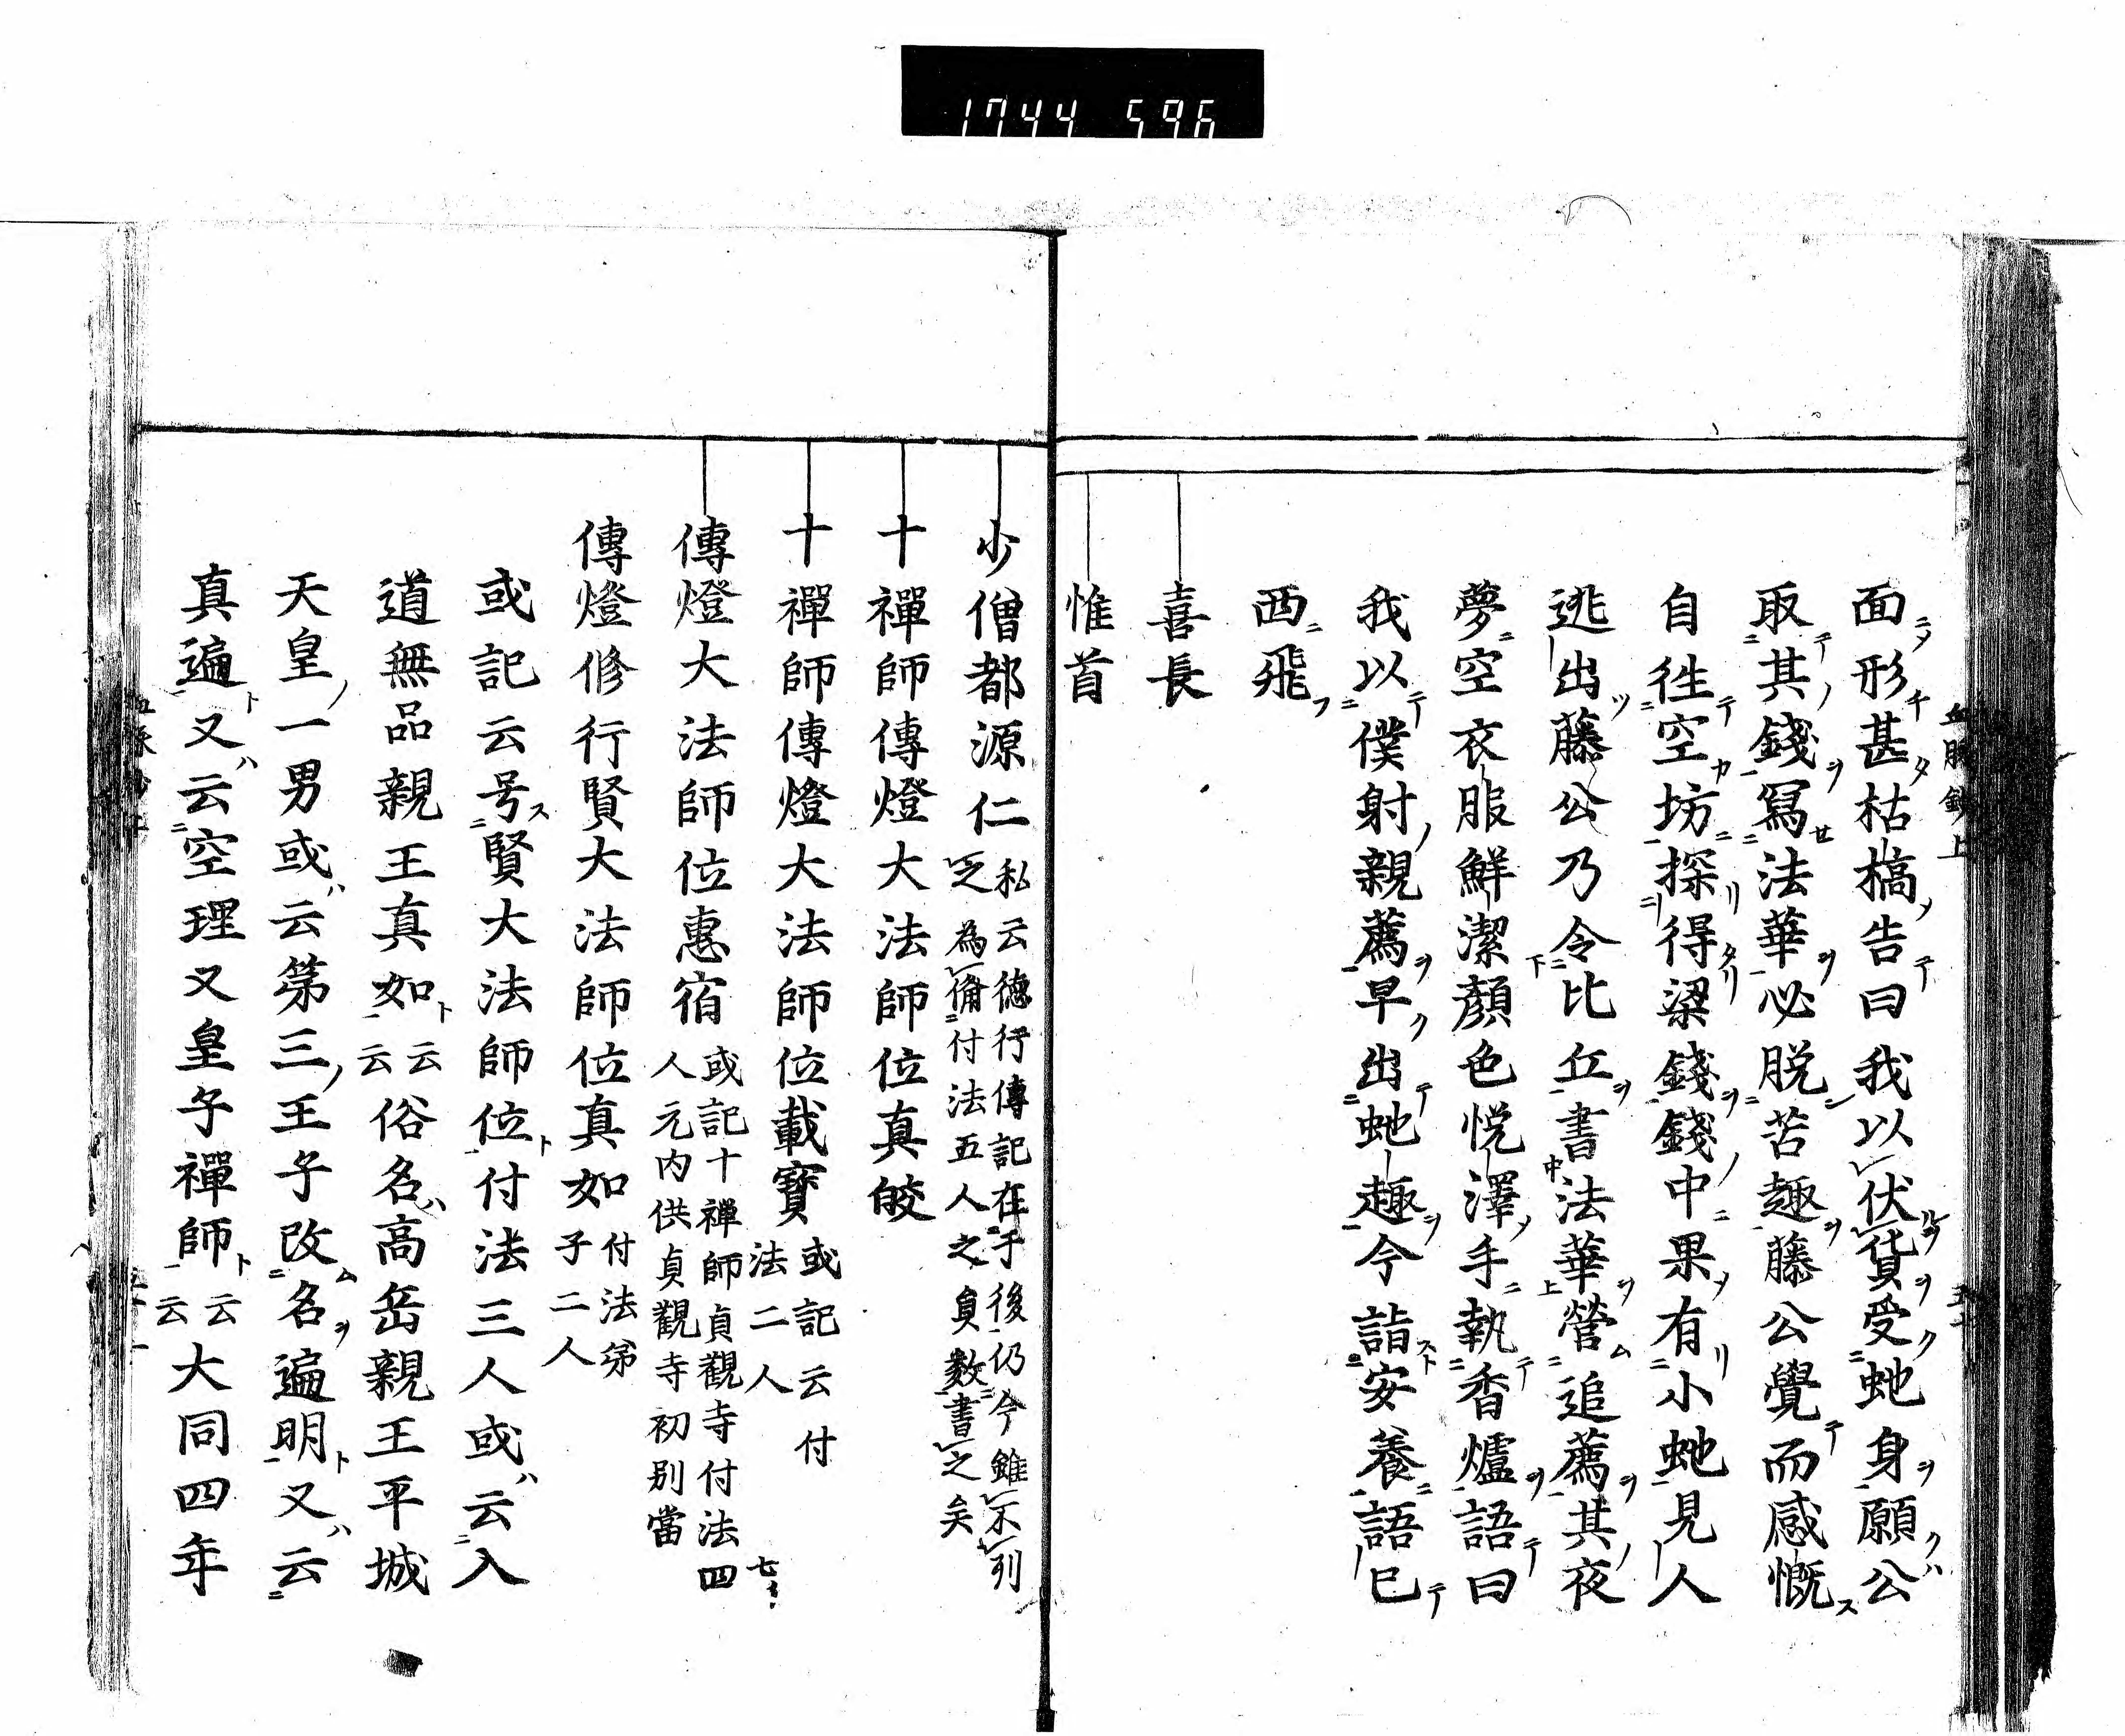 1744 596
面形甚枯槁告曰我以伏貨受虵身願公
取其錢冩法華必脱苦趣藤公覺而感慨
自徃空坊探得梁錢錢中果有小虵見人
逃出藤公乃令比丘書法華營追薦其夜
夢空衣服鮮潔顔色悦澤手執香爐語曰
我以僕射親薦早出虵趣今詣安養語已
西飛
喜長
惟首
少僧都源仁私云德行傳記在于後仍今雖不列
之為備付法五人之員數書之矣
十禪師傳燈大法師位真皎
十禪師傳燈大法師位載寶或記云付
法二人
傳燈大法師位惠宿或記十禪師貞觀寺付法四
人元内供貞觀寺初别當
傳燈修行賢大法師位真如付法弟
子二人
或記云号賢大法師位付法三人或云入
道無品親王真如云云俗名高岳親王平城
天皇一男或云第三王子改名遍明又云
真遍又云空理又皇子禪師云云大同四年